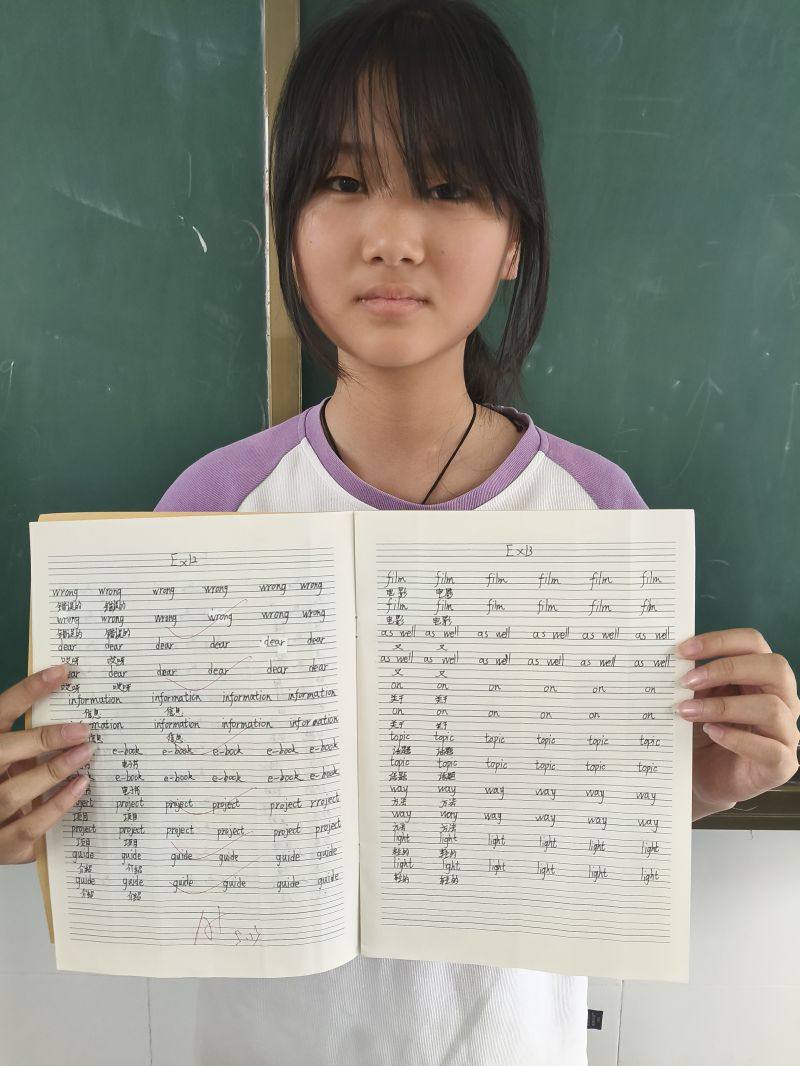 Ex12
wrong wrong wrong wrong wrong wrong
错误的 错误的
wrong wrong wrong wrong wrong wrong
错误的 错误的
dear dear dear dear dear dear
哎呀 哎呀
dear dear dear dear dear
哎呀 哎呀
information information information information
信息 信息
information information information
信息 信息
e-book e-book e-book e-book e-book
电子书
e-book e-book e-book e-book
电子书
project project project project rroject
项目 项目
project project project project project project
项目 项目
guide guide guide guide guide guide
介绍 介绍
guide guide guide guide guide guide
介绍 介绍
A+
Ex13
film film film film film film
电影 电影
film film film film film film
电影 电影
as well as well as well as well as well as well
又 又
as well as well as well as well as well as well
又 又
on on on on on on
关于 关于
on on on on on on
关于 关于
topic topic topic topic topic topic
话题 话题
topic topic topic topic topic topic
话题 话题
way way way way way way
方法 方法
way way way way way way
方法 方法
light light light light light light
轻的 轻的
light light light light light light
轻的 轻的